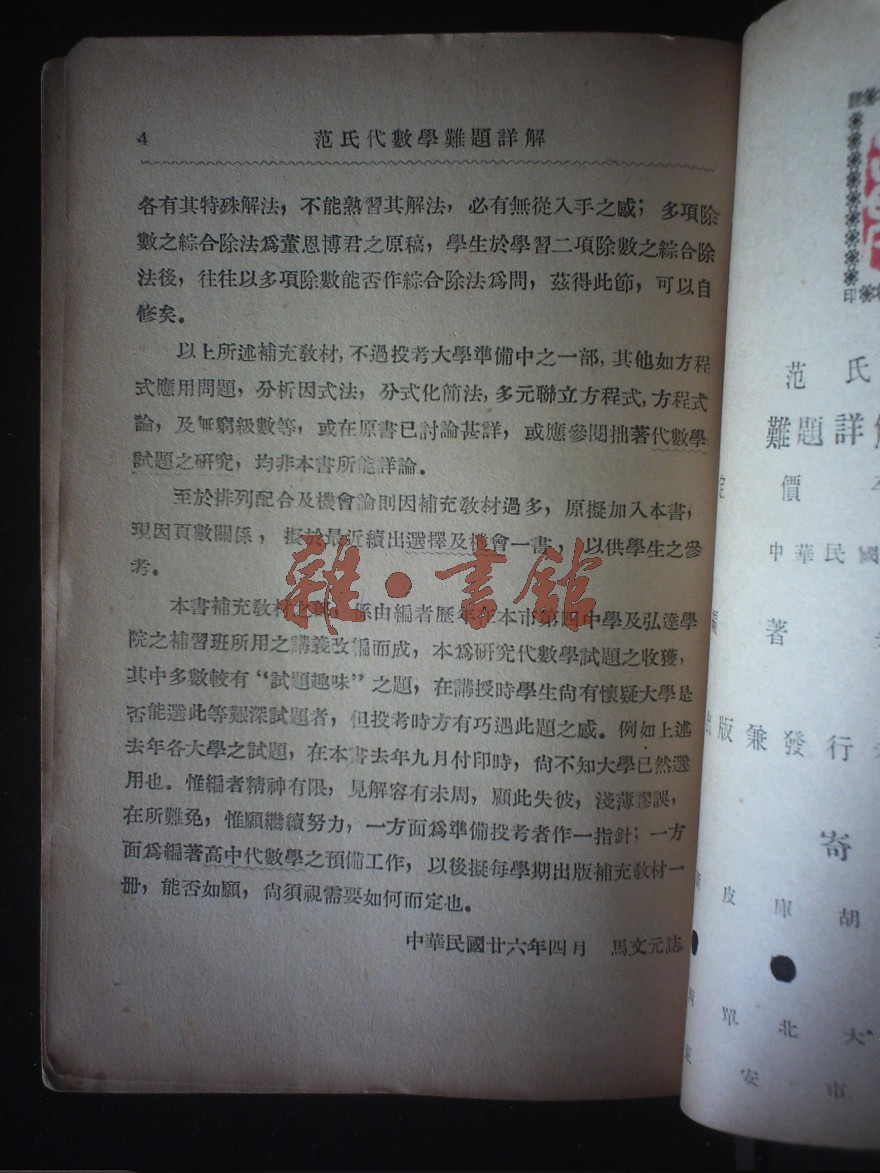 4 范氏代數學難題詳解
各有其特殊解法，不能熟習其解法，必有無從入手之感；多項除
數之綜合除法爲董恩博君之原稿，學生於學習二項除數之綜合除
法後，往往以多項除數能否作綜合除法爲問，茲得此節，可以自
修矣。
以上所述補充敎材，不過投考大學準備中之一部，其他如方程
式應用問題，分析因式法，分式化簡法，多元聯立方程式，方程式
論，及無窮級數等，或在原書已討論甚詳，或應參閱拙著代數學
試題之研究，均非本書所能詳論。
至於排列配合及機會論則因補充敎材過多，原擬加入本書，
現因頁數關係，擬於最近續出選擇及機會一書，以供學生之參
考。
本書補充敎材 係由編者歷年在本市第四中學及弘達學
院之補習班所用之講義改編而成，本爲研究代數學試題之收獲，
其中多數較有“試題趣味”之題，在講授時學生尙有懷疑大學是
否能選此等艱深試題者，但投考時方有巧遇此題之感。例如上述
去年各大學之試題，在本書去年九月付印時，尙不知大學已然選
用也。惟編者精神有限，見解容有未周，顧此失彼，淺薄謬誤，
在所難免，惟願繼續努力，一方面爲準備投考者作一指針；一方
面爲編著高中代數學之預備工作，以後擬每學期出版補充敎材一
册，能否如願，尙須視需要如何而定也。
中華民國廿六年四月 馬文元誌
雜·書館
印
范氏
難題詳解
定價
中華民國
編著
出版兼發行
寄
皮庫胡
單北大
安市